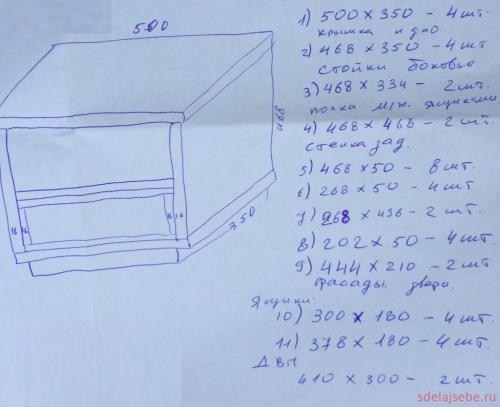 500
468
350
16
16
16
16
1) 500 x 350 - 4 шт.
крышка и дно.
2) 468 x 350 - 4 шт
стойки боковые.
3) 468 x 334 - 2 шт.
полка м/ж. ящиками
4) 468 x 468 - 2 шт.
стенка зад.
5) 468 x 50 - 8 шт.
6) 268 x 50 - 4 шт
7) 268 x 436 - 2 шт.
8) 202 x 50 - 4 шт.
9) 444 x 210 - 2 шт
фасады двери.
Ящики:
10) 300 x 180 - 4 шт.
11) 378 x 180 - 4 шт.
ДВП
410 x 300 - 2 шт.
sdelajsebe.ru